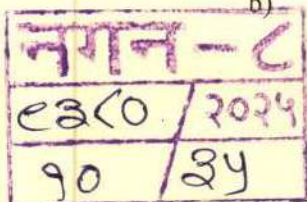 b)
नगन - ८
९३८० / २०२५
१० / ३५